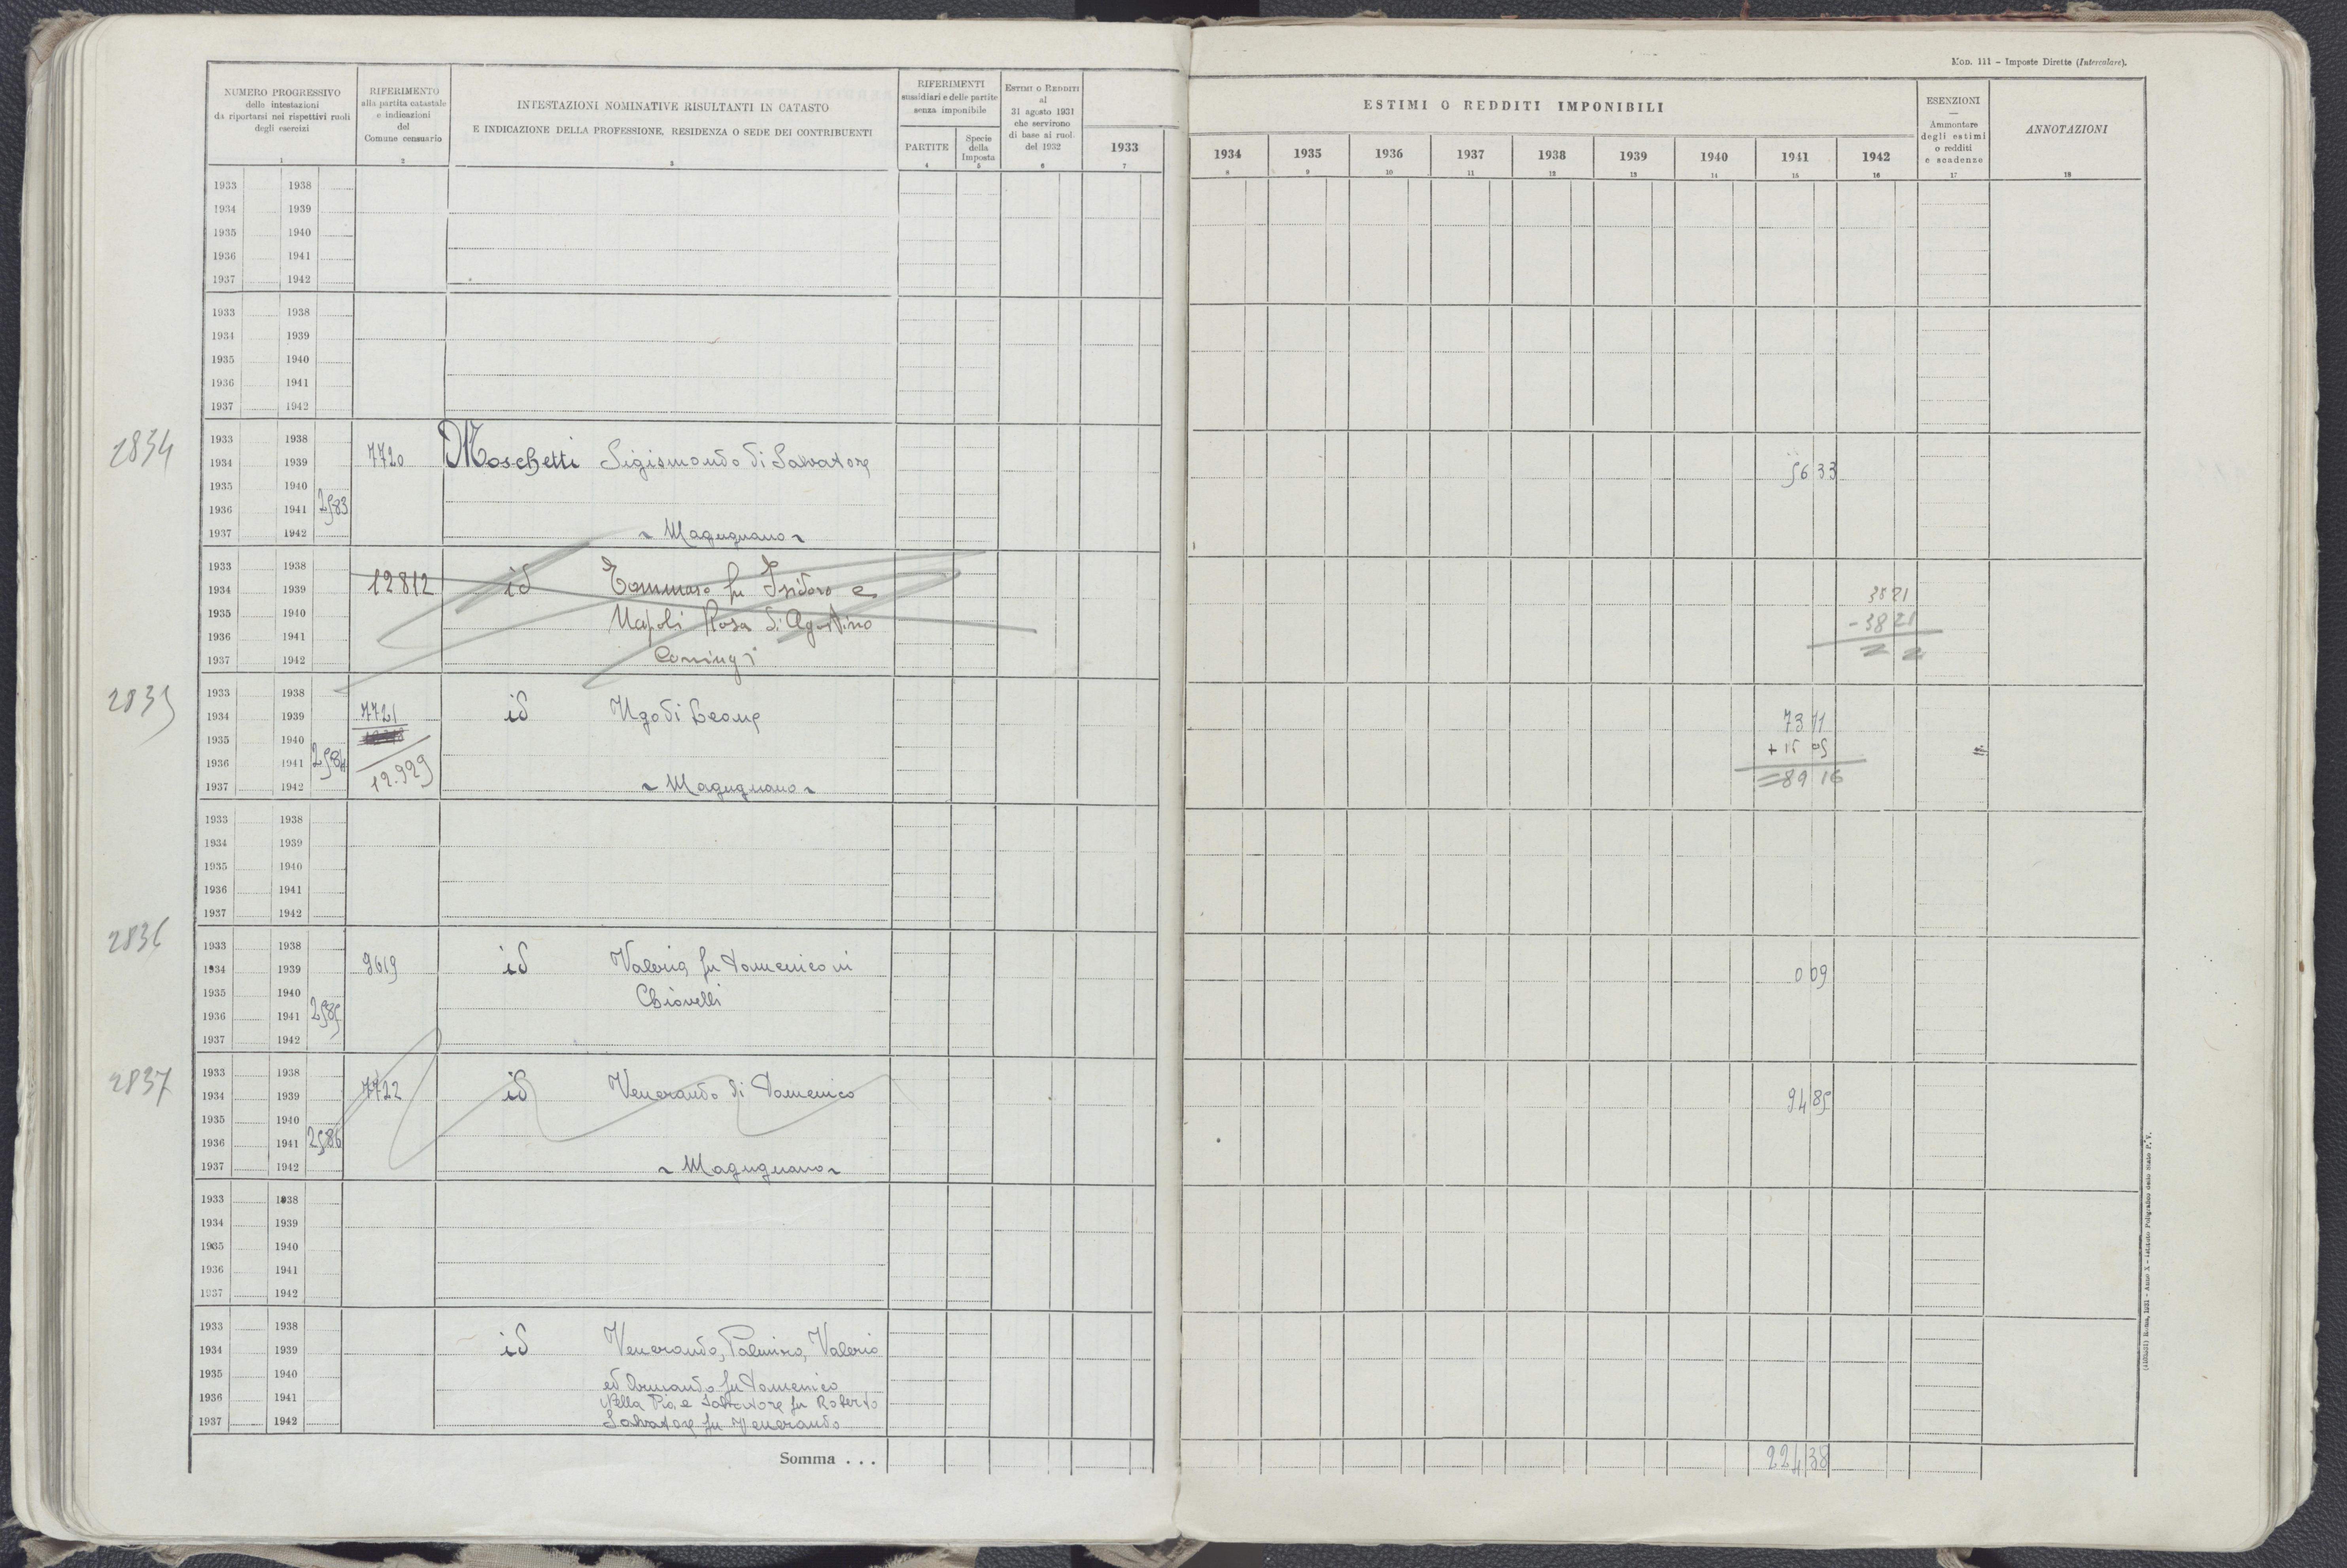 Mod. 111 - Imposte Dirette (Intercalare).
NUMERO PROGRESSIVO
delle intestazioni
da riportarsi nei rispettivi ruoli
degli esercizi
1
RIFERIMENTO
alla partita catastale
e indicazioni
del
Comune censuario
2
INTESTAZIONI NOMINATIVE RISULTANTI IN CATASTO
E INDICAZIONE DELLA PROFESSIONE, RESIDENZA O SEDE DEI CONTRIBUENTI
3
RIFERIMENTI
sussidiari e delle partite
senza imponibile
PARTITE
4
Specie
della
Imposta
5
ESTIMI O REDDITI
al
31 agosto 1931
che servirono
di base ai ruoli
del 1932
6
1933
7
ESTIMI O REDDITI IMPONIBILI
1934 1935 1936 1937 1938 1939 1940 1941 1942
8 9 10 11 12 13 14 15 16
ESENZIONI
—
Ammontare
degli estimi
o redditi
e scadenze
17
ANNOTAZIONI
18
1933 1938
1934 1939
1935 1940
1936 1941
1937 1942
1933 1938
1934 1939
1935 1940
1936 1941
1937 1942
2834
1933 1938
1934 1939 7720 Moschetti Sigismondo di Salvatore 56 33
1935 1940
1936 1941 2583
1937 1942 ~ Magugnano ~
1933 1938
1934 1939 12812 id Tommaso fu Isidoro e 38 21
1935 1940 Napoli Rosa di Agostino - 38 21
1936 1941 = =
1937 1942 Coniugi
2835
1933 1938
1934 1939 7721 id Ugo di Leone 73 11
1935 1940 + 15 05
1936 1941 2584 12.929 = 89 16
1937 1942 ~ Magugnano ~
1933 1938
1934 1939
1935 1940
1936 1941
1937 1942
2836
1933 1938
1934 1939 9619 id Valeria fu Domenico in 0 09
1935 1940 Chiovelli
1936 1941 2585
1937 1942
2837
1933 1938
1934 1939 7722 id Venerando di Domenico 94 85
1935 1940
1936 1941 2586
1937 1942 ~ Magugnano ~
1933 1938
1934 1939
1935 1940
1936 1941
1937 1942
1933 1938
1934 1939 id Venerando, Palmira, Valeria
1935 1940 ed Armando fu Domenico
1936 1941 Nella Pia e Salvatore fu Roberto
1937 1942 Salvatore fu Venerando
Somma . . . 224 38